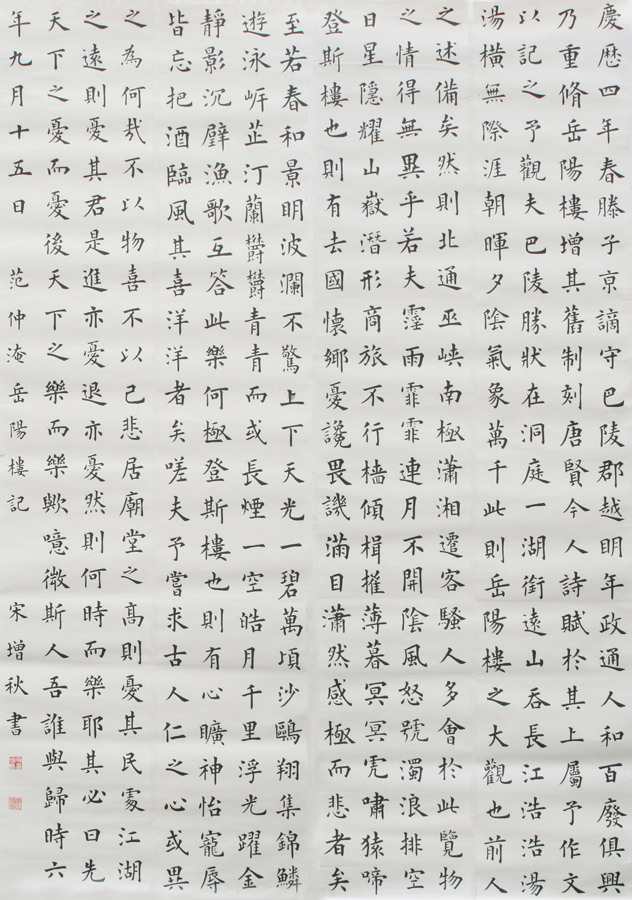 慶曆四年春滕子京謫守巴陵郡越明年政通人和百廢俱興
乃重脩岳陽樓增其舊制刻唐賢今人詩賦於其上屬予作文
以記之予觀夫巴陵勝狀在洞庭一湖銜遠山吞長江浩浩湯
湯橫無際涯朝暉夕陰氣象萬千此則岳陽樓之大觀也前人
之述備矣然則北通巫峽南極瀟湘遷客騷人多會於此覽物
之情得無異乎若夫霪雨霏霏連月不開陰風怒號濁浪排空
日星隱耀山嶽潛形商旅不行檣傾楫摧薄暮冥冥虎嘯猿啼
登斯樓也則有去國懷鄉憂讒畏譏滿目瀟然感極而悲者矣
至若春和景明波瀾不驚上下天光一碧萬頃沙鷗翔集錦鱗
遊泳岸芷汀蘭鬱鬱青青而或長煙一空皓月千里浮光躍金
靜影沉璧漁歌互答此樂何極登斯樓也則有心曠神怡寵辱
皆忘把酒臨風其喜洋洋者矣嗟夫予嘗求古人仁之心或異
之為何哉不以物喜不以己悲居廟堂之高則憂其民處江湖
之遠則憂其君是進亦憂退亦憂然則何時而樂耶其必曰先
天下之憂而憂後天下之樂而樂歟噫微斯人吾誰與歸時六
年九月十五日 范仲淹岳陽樓記 宋增秋書